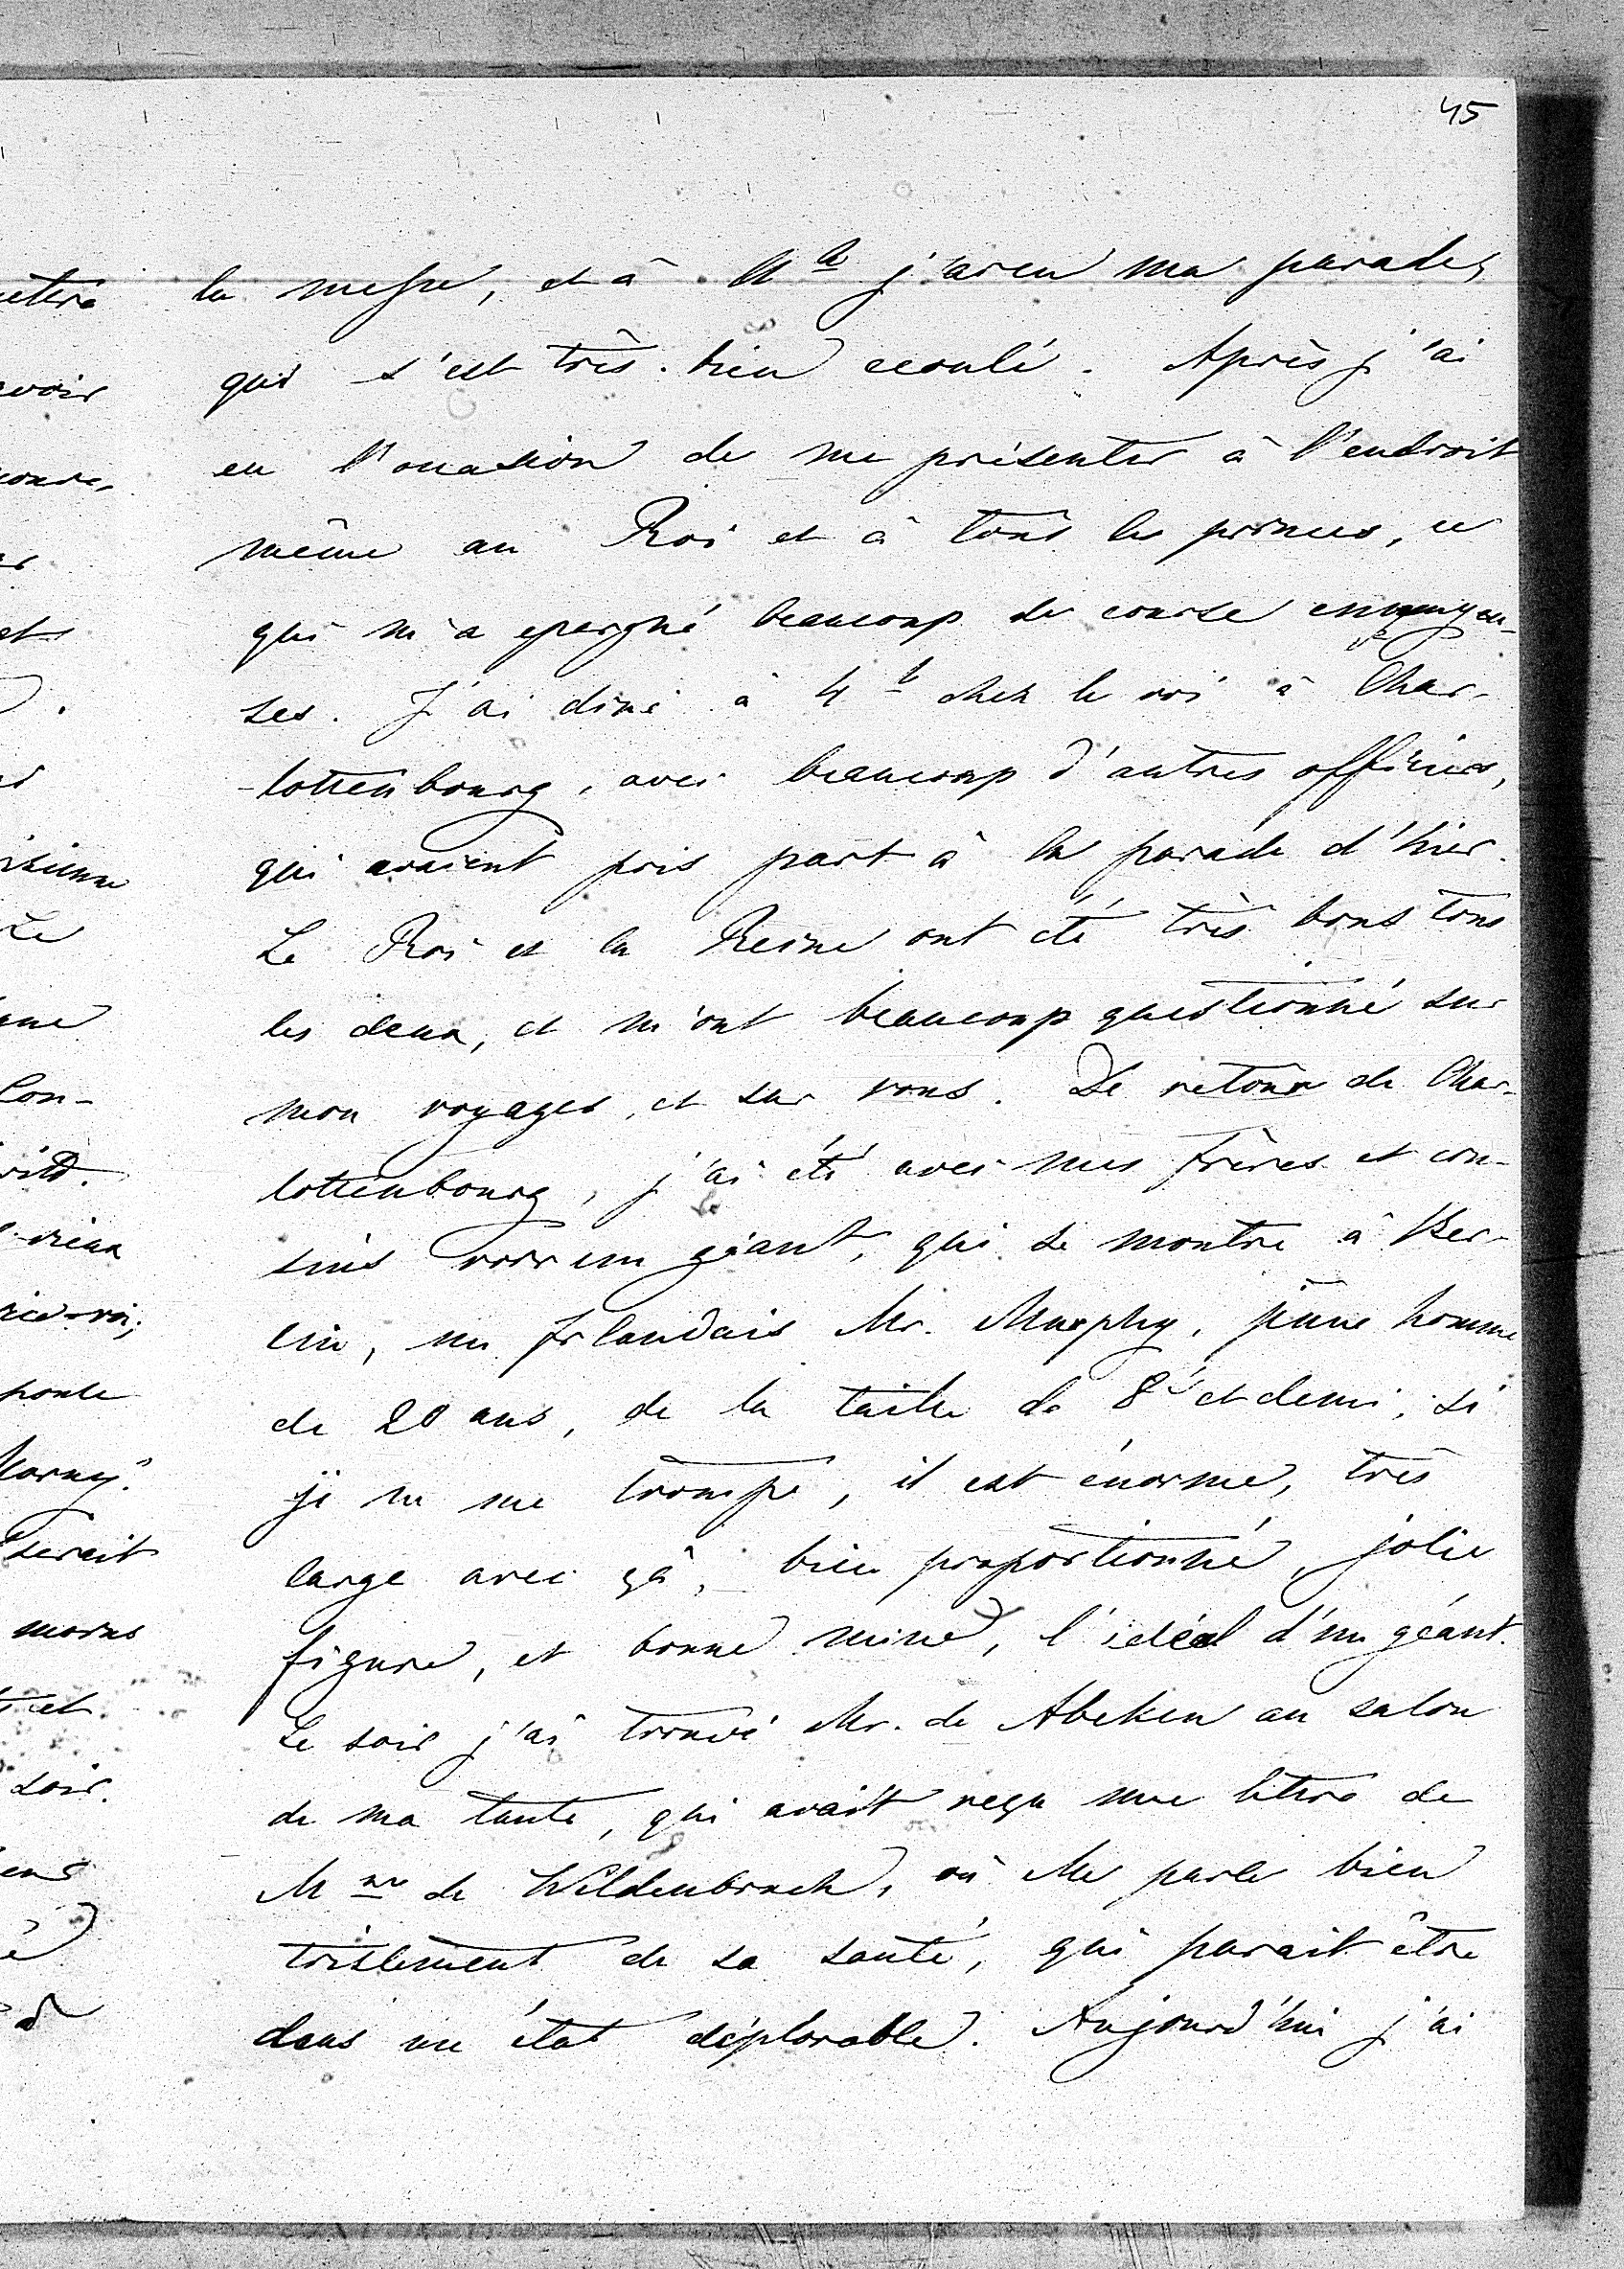 45
la messe, et à 11 h j'ai eu ma parade,
qui s'est très bien ecoulé. Après j'ai
eu l'occasion de me présenter à l'endroit
même au Roi et à tous les princes, ce
qui m'a epargné beaucoup de course ennuyeu-
ses. J'ai diné à 4 h chez le roi à Char-
-lottenbourg, avec beaucoup d'autres officiers,
qui avaient pris part à la parade d'hier.
Le Roi et la Reine ont été très bons tous
les deux, et m'ont beaucoup questionné sur
mon voyages, et sur vous. De retour de Char-
lottenbourg, j'ai été avec mes frères et cou-
sins voir un géant, qui se montre à Ber-
lin, un Irlandais Mr. Murphy, jeune homme
de 20 ans, de la taille de 8' et demi, si
je ne me trompe, il est énorme, très
large avec çà, bien proportionné, jolie
figure, et bonne mine, l'idéal d'un géant.
Le soir j'ai trouvé Mr. de Abeken au salon
de ma tante, qui avait reçu une lettre de
Mme de Wildenbruch, où elle parle bien
tristement de sa santé, qui parait être
dans un état déplorable. Aujourd'hui j'ai